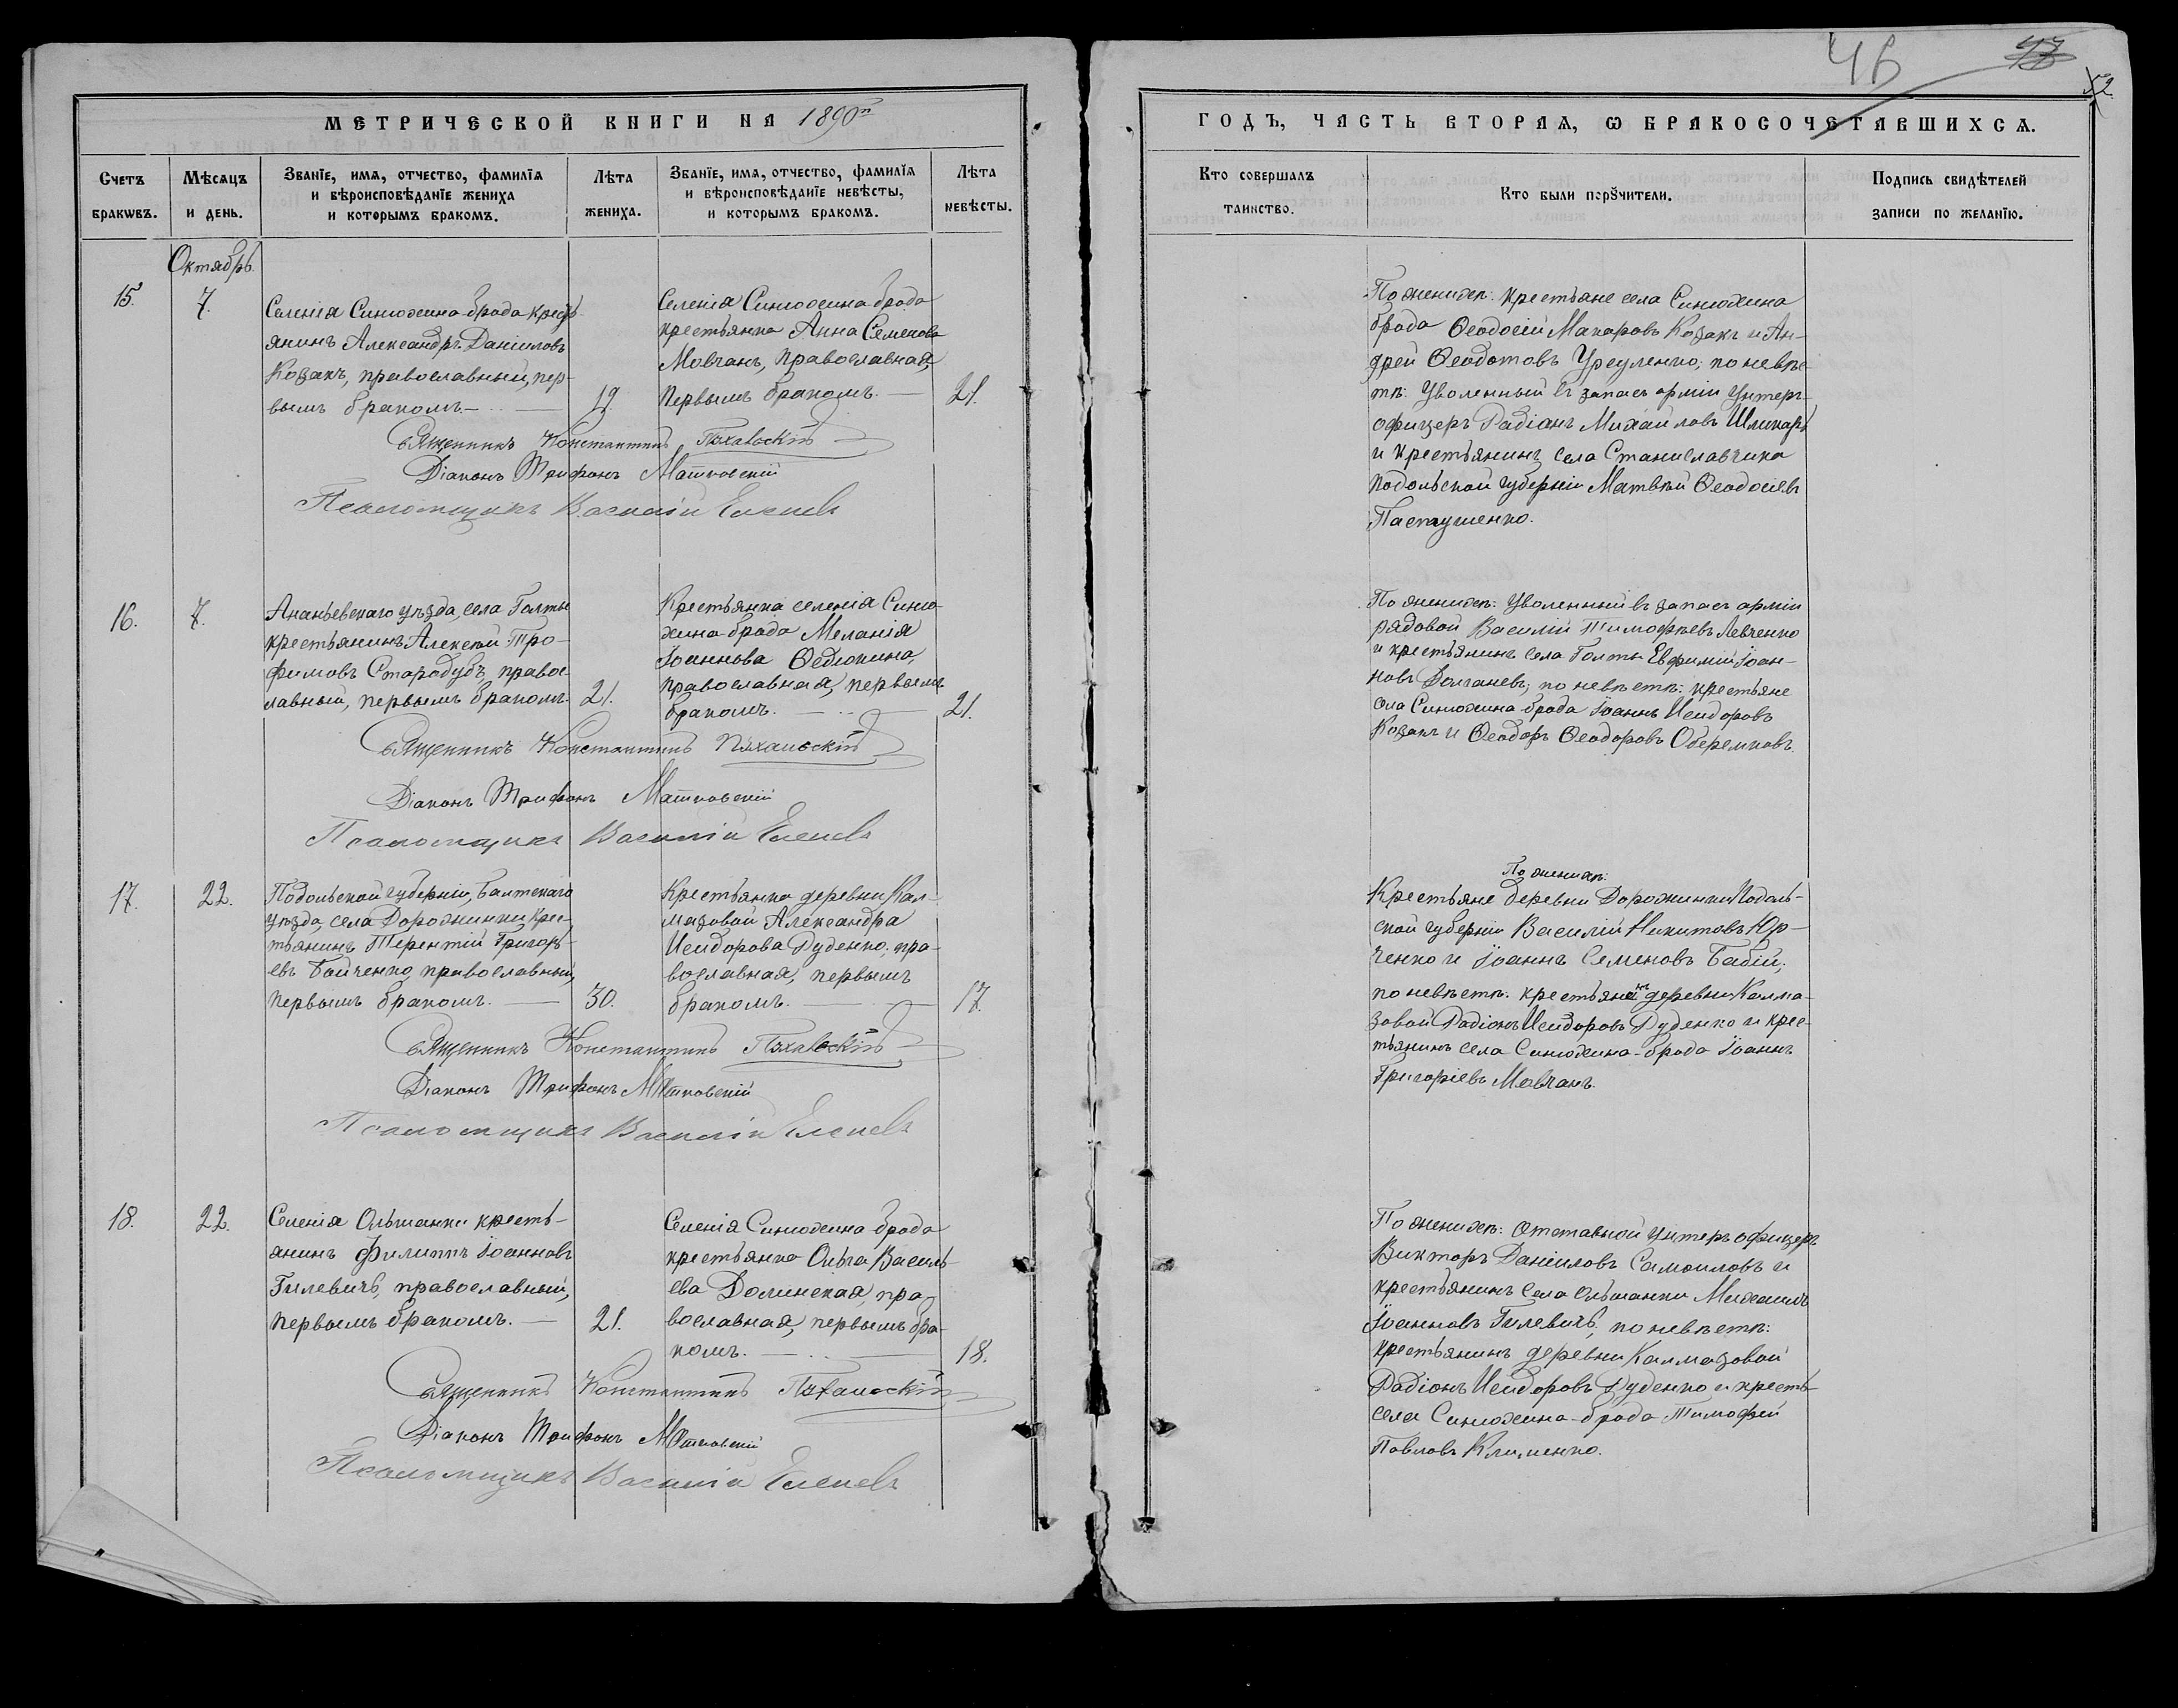 46
47
52.
МЕТРИЧЕСКОЙ КНИГИ НА 1890й
ГОДЪ, ЧАСТЬ ВТОРАЯ, Ѡ БРАКОСОЧЕТАВШИХСЯ.
Счетъ браковъ.
Мѣсяцъ и день.
Званїе, имя, отчество, фамилїя
и вѣроисповѣданїе жениха
и которымъ бракомъ.
Лѣта жениха.
Званїе, имя, отчество, фамилїя
и вѣроисповѣданїе невѣсты,
и которымъ бракомъ.
Лѣта невѣсты.
Кто совершалъ таинство.
Кто были порꙋчители.
Подпись свидѣтелей
записи по желанїю.
Октябрь.
15.
7.
Селенія Синюхина-брода кресть-
янинъ Александръ Даніиловъ
Козакъ, православный, пер-
вымъ бракомъ.
19.
Селенія Синюхина брода
крестьянка Анна Семенова
Мовчанъ, православная,
первымъ бракомъ.
21.
Священникъ Константинъ Пѣхальскій
Діаконъ Трифонъ Матковскій
Псаломщикъ Василій Еленевъ
По женихѣ: крестьяне села Синюхина
брода Ѳеодосій Макаровъ Козакъ и Ан-
дрей Ѳеодотовъ Урсуленко; по невѣс-
тѣ: Уволенный въ запасъ арміи Унтеръ-
офицеръ Радіонъ Михайловъ Шликарь
и крестьянинъ села Станиславчика
Подольской губерніи Матвѣй Ѳеодосіевъ
Пастушенко.
16.
7.
Ананьевскаго уѣзда, села Голты
крестьянинъ Алексѣй Тро-
фимовъ Стародубъ, правос-
лавный, первымъ бракомъ.
21.
Крестьянка селенія Синю-
хина-брода Меланія
Іоаннова Ѳедюкина,
православная, первымъ
бракомъ.
21.
Священникъ Константинъ Пѣхальскій
Діаконъ Трифонъ Матковскій
Псаломщикъ Василій Еленевъ
По женихѣ: Уволенный въ запасъ арміи
рядовой Василій Тимофѣевъ Левченко
и крестьянинъ села Голты Евфимій Іоан-
новъ Долганевъ; по невѣстѣ: крестьяне
села Синюхина-брода Іоаннъ Исидоровъ
Козакъ и Ѳеодоръ Ѳеодоровъ Оберемковъ.
17.
22.
Подольской губерніи, Балтскаго
уѣзда, села Дорожинки крес-
тьянинъ Терентій Григорь-
евъ Бойченко, православный,
первымъ бракомъ.
30.
Крестьянка деревни Кал-
мазовой Александра
Исидорова Дуденко, пра-
вославная, первымъ
бракомъ.
17.
Священникъ Константинъ Пѣхальскій
Діаконъ Трифонъ Матковскій
Псаломщикъ Василій Еленевъ
По женихѣ:
Крестьяне деревни Дорожинки Подоль-
ской губерніи Василій Никитовъ Юр-
ченко и Іоаннъ Семеновъ Бабій;
по невѣстѣ: крестьянинъ деревни Калма-
зовой Радіонъ Исидоровъ Дуденко и крес-
тьянинъ села Синюхина-брода Іоаннъ
Григоріевъ Мовчанъ.
18.
22.
Селенія Ольшанки кресть-
янинъ Филиппъ Іоанновъ
Гилевичъ, православный,
первымъ бракомъ.
21.
Селенія Синюхина брода
крестьянка Ольга Василь-
ева Долинская, пра-
вославная, первымъ бра-
комъ.
18.
Священникъ Константинъ Пѣхальскій
Діаконъ Трифонъ Матковскій
Псаломщикъ Василій Еленевъ
По женихѣ: Отставной унтеръ офицеръ
Викторъ Даніиловъ Самоиловъ и
крестьянинъ села Ольшанки Михаилъ
Іоанновъ Гилевичъ; по невѣстѣ:
крестьянинъ деревни Калмазовой
Радіонъ Исидоровъ Дуденко и кресть-
села Синюхина-брода Тимофей
Павловъ Клименко.